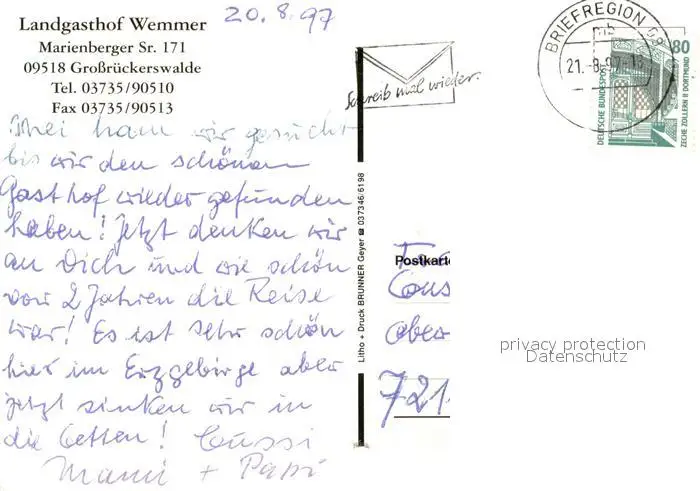 Landgasthof Wemmer
Marienberger Sr. 171
09518 Großrückerswalde
Tel. 03735/90510
Fax 03735/90513
20.8.97
ham wir gesucht
bis wir den schönen
Gasthof wieder gefunden
haben! Jetzt denken wir
an Dich und wie schön
vor 2 Jahren die Reise
war! Es ist sehr schön
hier im Erzgebirge aber
jetzt sinken wir in
die Betten! Bussi
Mami + Papi
Schreib mal wieder.
BRIEFREGION
21.-8.97-18
80
DEUTSCHE BUNDESPOST
ZECHE ZOLLERN II DORTMUND
Litho + Druck BRUNNER Geyer ☎ 037346/6198
Postkarte
Ober
721
privacy protection
Datenschutz